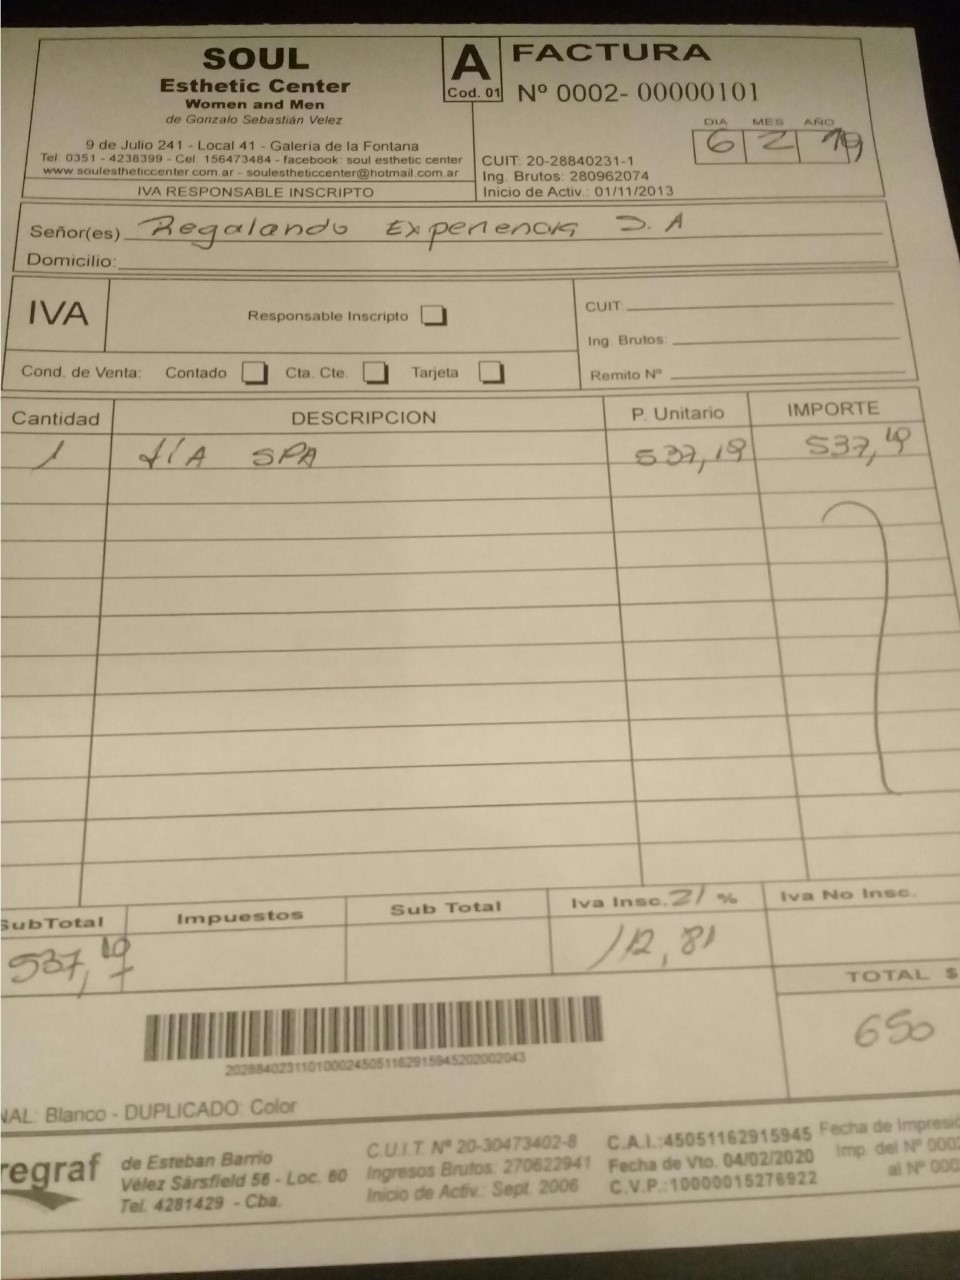 SOUL
Esthetic Center
Women and Men
de Gonzalo Sebastián Velez
9 de Julio 241 - Local 41 - Galería de la Fontana
Tel: 0351 - 4238399 - Cel: 156473484 - facebook: soul esthetic center
www.soulestheticcenter.com.ar - soulestheticcenter@hotmail.com.ar
IVA RESPONSABLE INSCRIPTO
A
Cod. 01
FACTURA
Nº 0002- 00000101
DIA MES AÑO
6 2 19
CUIT: 20-28840231-1
Ing. Brutos: 280962074
Inicio de Activ.: 01/11/2013
Señor(es) Regalando Experiencia S.A
Domicilio:
IVA
Responsable Inscripto
Cond. de Venta: Contado Cta. Cte. Tarjeta
CUIT:
Ing. Brutos:
Remito Nº
Cantidad DESCRIPCION P. Unitario IMPORTE
1 SPA 537,19 537,19
SubTotal Impuestos Sub Total Iva Insc. 21 % Iva No Insc.
537,19 112,81
TOTAL $
650
2028840231101000245051162915945202002043
NAL: Blanco - DUPLICADO: Color
regraf
de Esteban Barrio
Vélez Sársfield 56 - Loc. 60
Tel. 4281429 - Cba.
C.U.I.T. Nº 20-30473402-8
Ingresos Brutos: 270622941
Inicio de Activ.: Sept. 2006
C.A.I.:45051162915945
Fecha de Vto. 04/02/2020
C.V.P.:10000015276922
Fecha de Impresió
Imp. del Nº 0002
al Nº 000